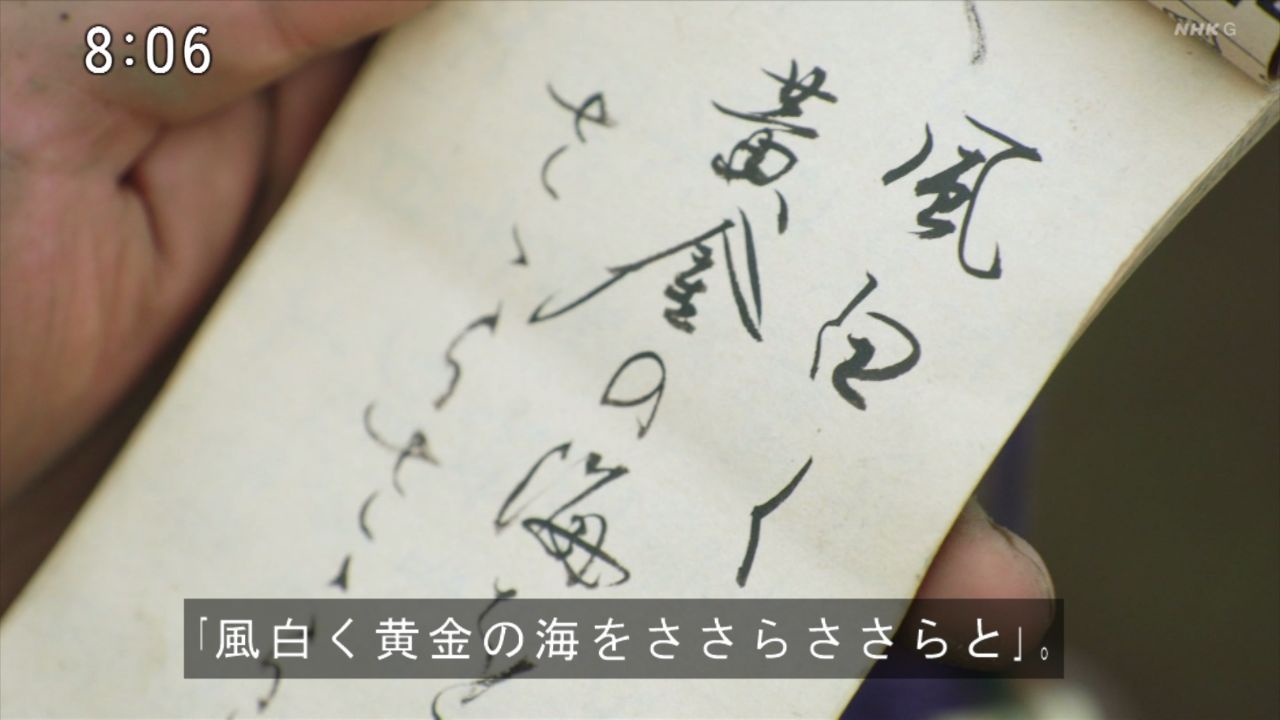 8:06
NHK G
風白く
黄金の海を
さゝらさゝら
「風白く黄金の海をささらささらと」。